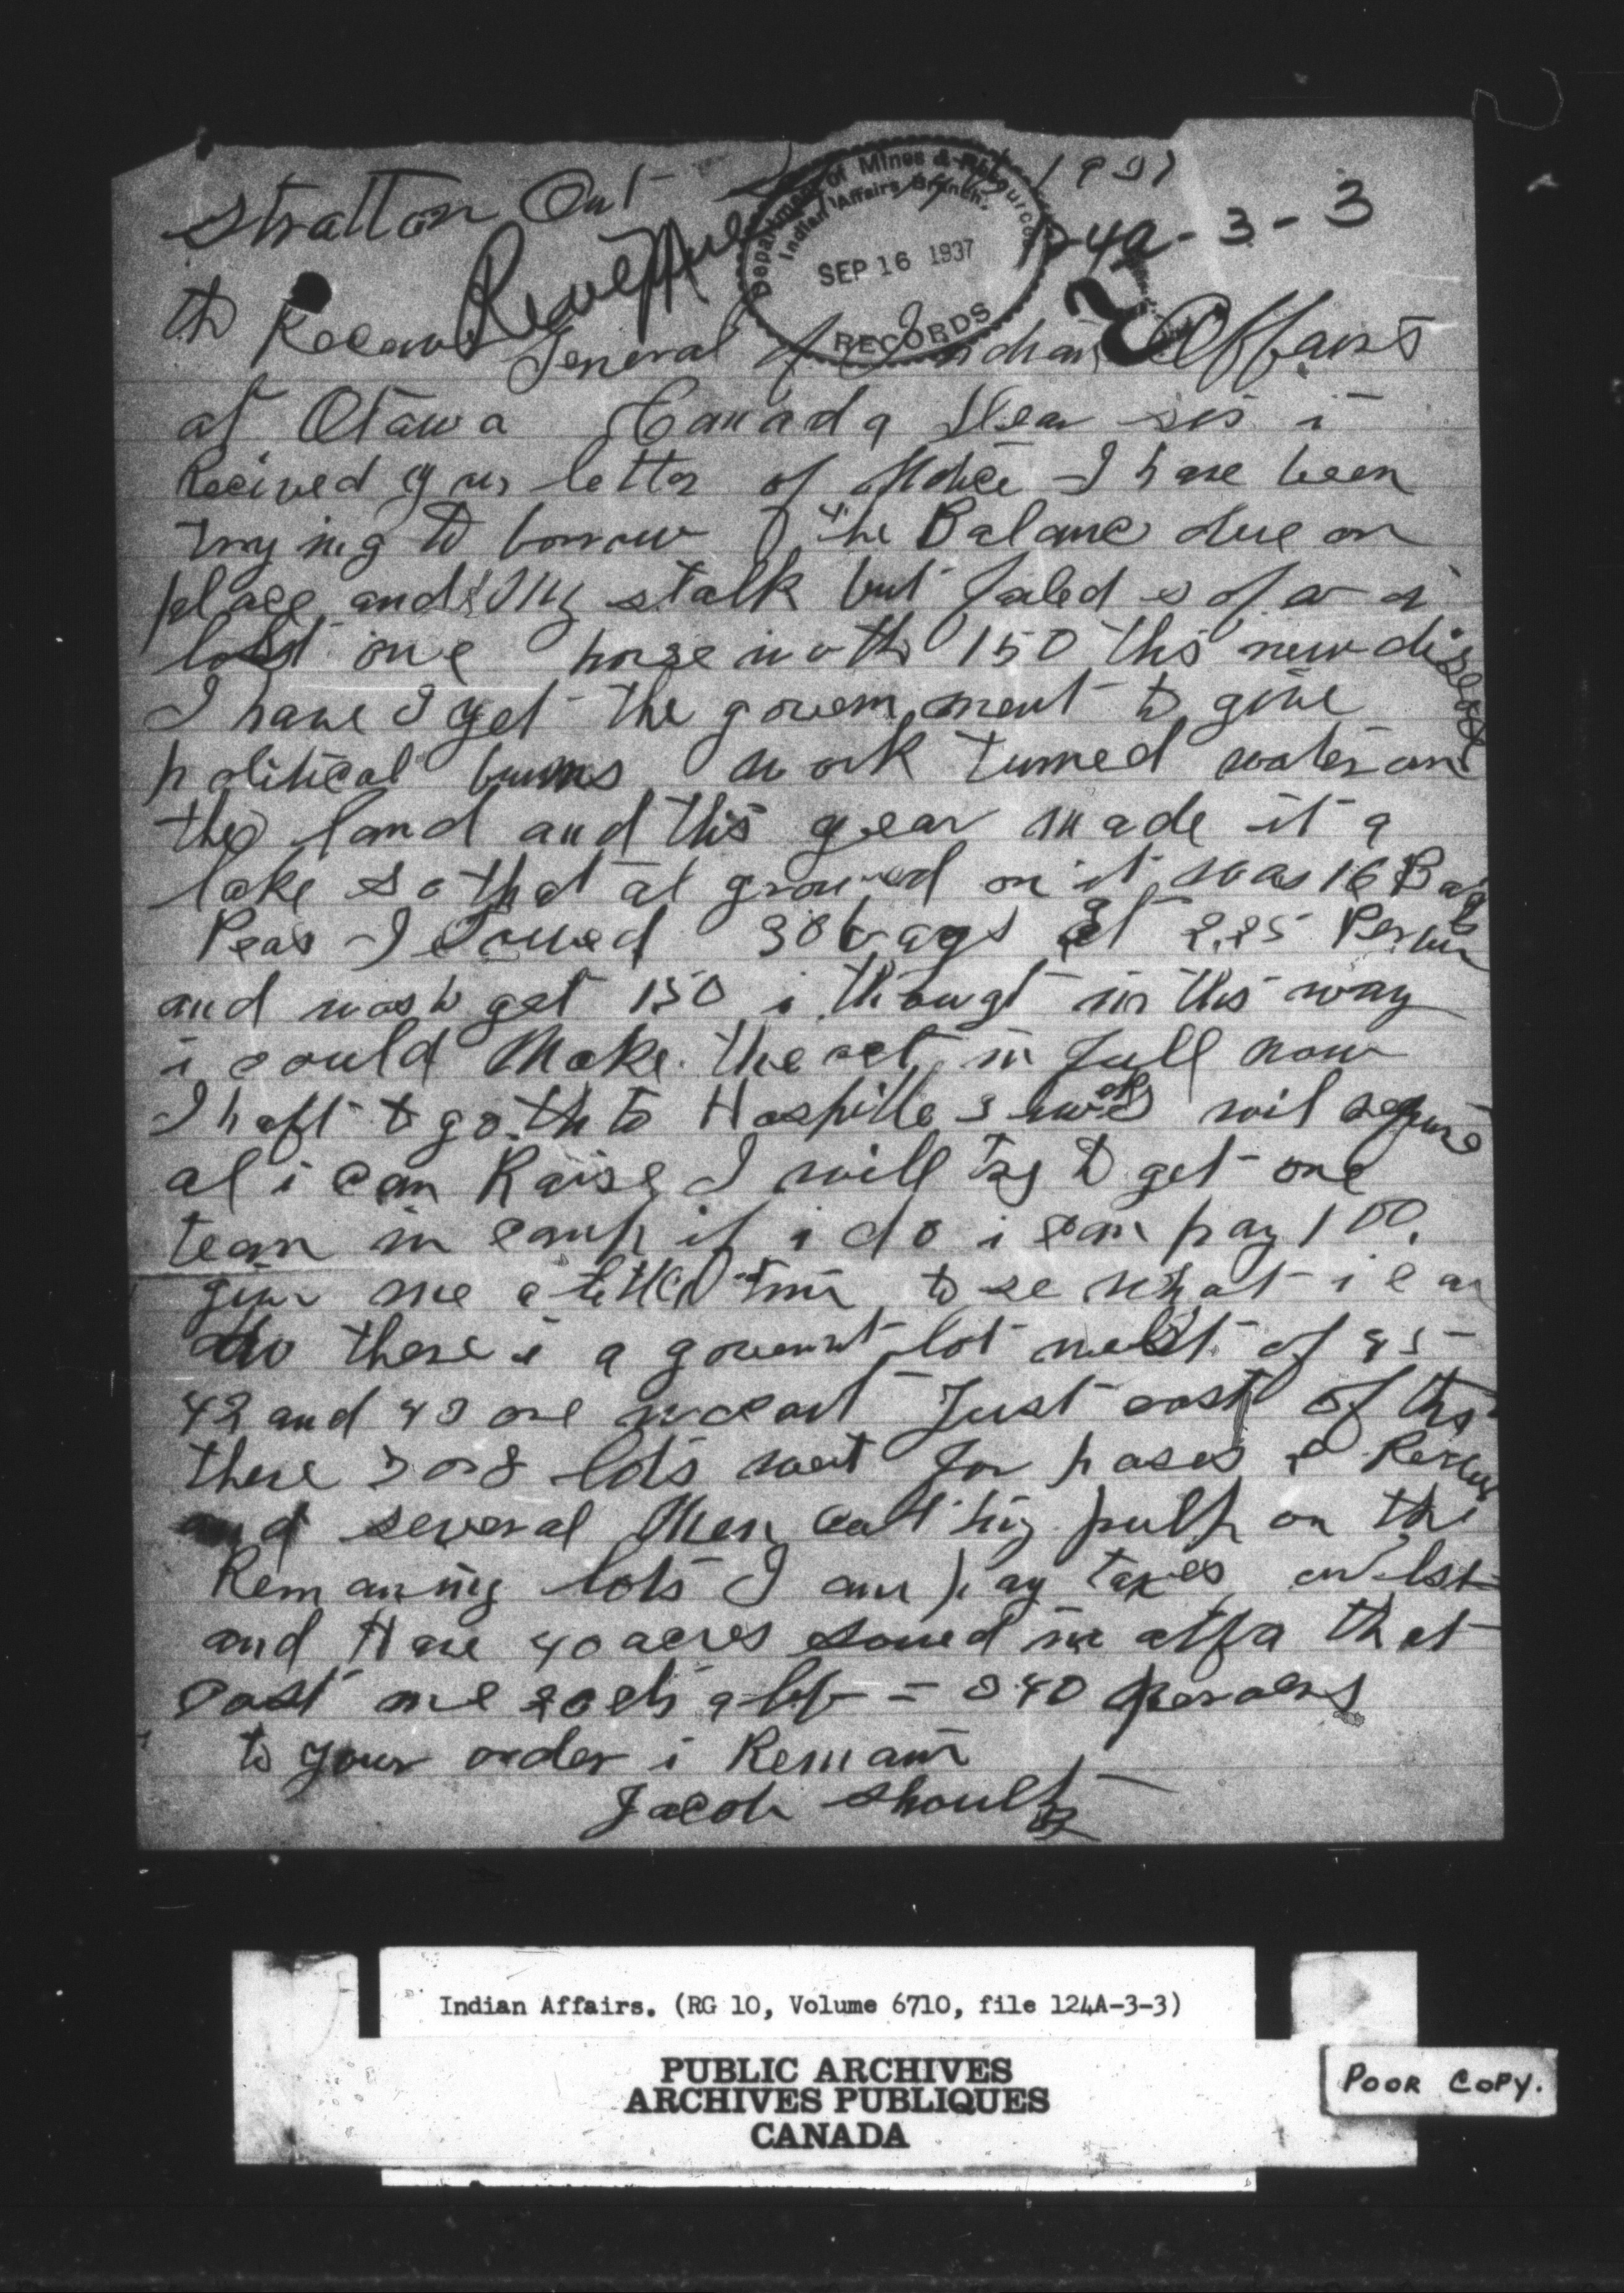 Stratton Ont 1937
Department of Mines & Resources
Indian Affairs Branch
SEP 16 1937
RECORDS
124A-3-3
to General of Indian Affairs
at Otawa Canada Dear sir i
Recived your letter of Notice I have been
trying to borrow the Balance due on
place and my stalk but faled so far i
lost one horse worth 150 this new disease
I have I get the government to give
political bums work turned water on
the land and this year made it a
lake so that al growed on it was 16 Bags
Peas I sowed 30 bags at 2.25 Per bu
and was to get 150 i thougt in this way
i could Make the act in full now
I haft to go to Hospitle wil
al i can Raise I will try to get one
team in camp if i do i can pay 100.
give me a little time to se what i can
do there is a lot west of
42 and 43 are Just east of this
there 7 or 8 lots went for
and several Men cutting pulp on the
Remaning lots I am pay taxes on
and Have 40 acres sowed in alfa that
cost me
to your order i Remain
Jacob Shoults
Indian Affairs. (RG 10, Volume 6710, file 124A-3-3)
PUBLIC ARCHIVES
ARCHIVES PUBLIQUES
CANADA
POOR COPY.